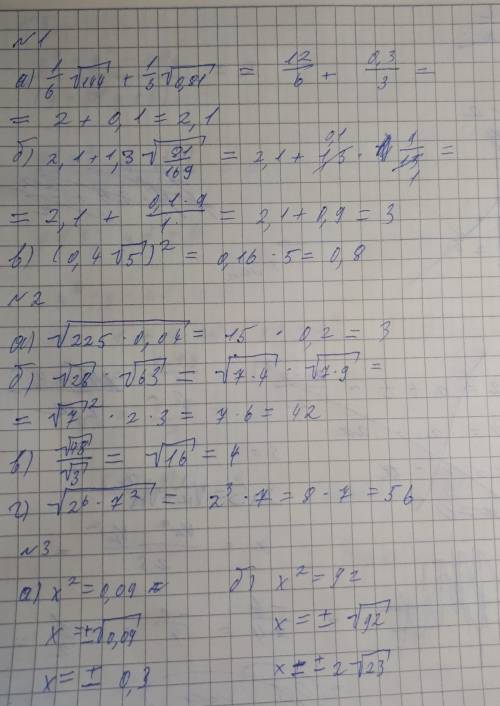 №1
а) 1/6 √144 + 1/3 √0,81 = 12/6 + 0,3/3 =
= 2 + 0,1 = 2,1
б) 2,1 + 1,3 √(81/169) = 2,1 + 1,3 · 9/13 =
= 2,1 + (0,1 · 9)/1 = 2,1 + 0,9 = 3
в) (0,4 √5)² = 0,16 · 5 = 0,8
№2
а) √(225 · 0,04) = 15 · 0,2 = 3
б) √28 · √63 = √(7·4) · √(7·9) =
= √7² · 2 · 3 = 7 · 6 = 42
в) √48/√3 = √16 = 4
г) √(2⁶ · 7²) = 2³ · 7 = 8 · 7 = 56
№3
а) x² = 0,09
x = ±√0,09
x = ± 0,3
б) x² = 92
x = ± √92
x = ± 2√23